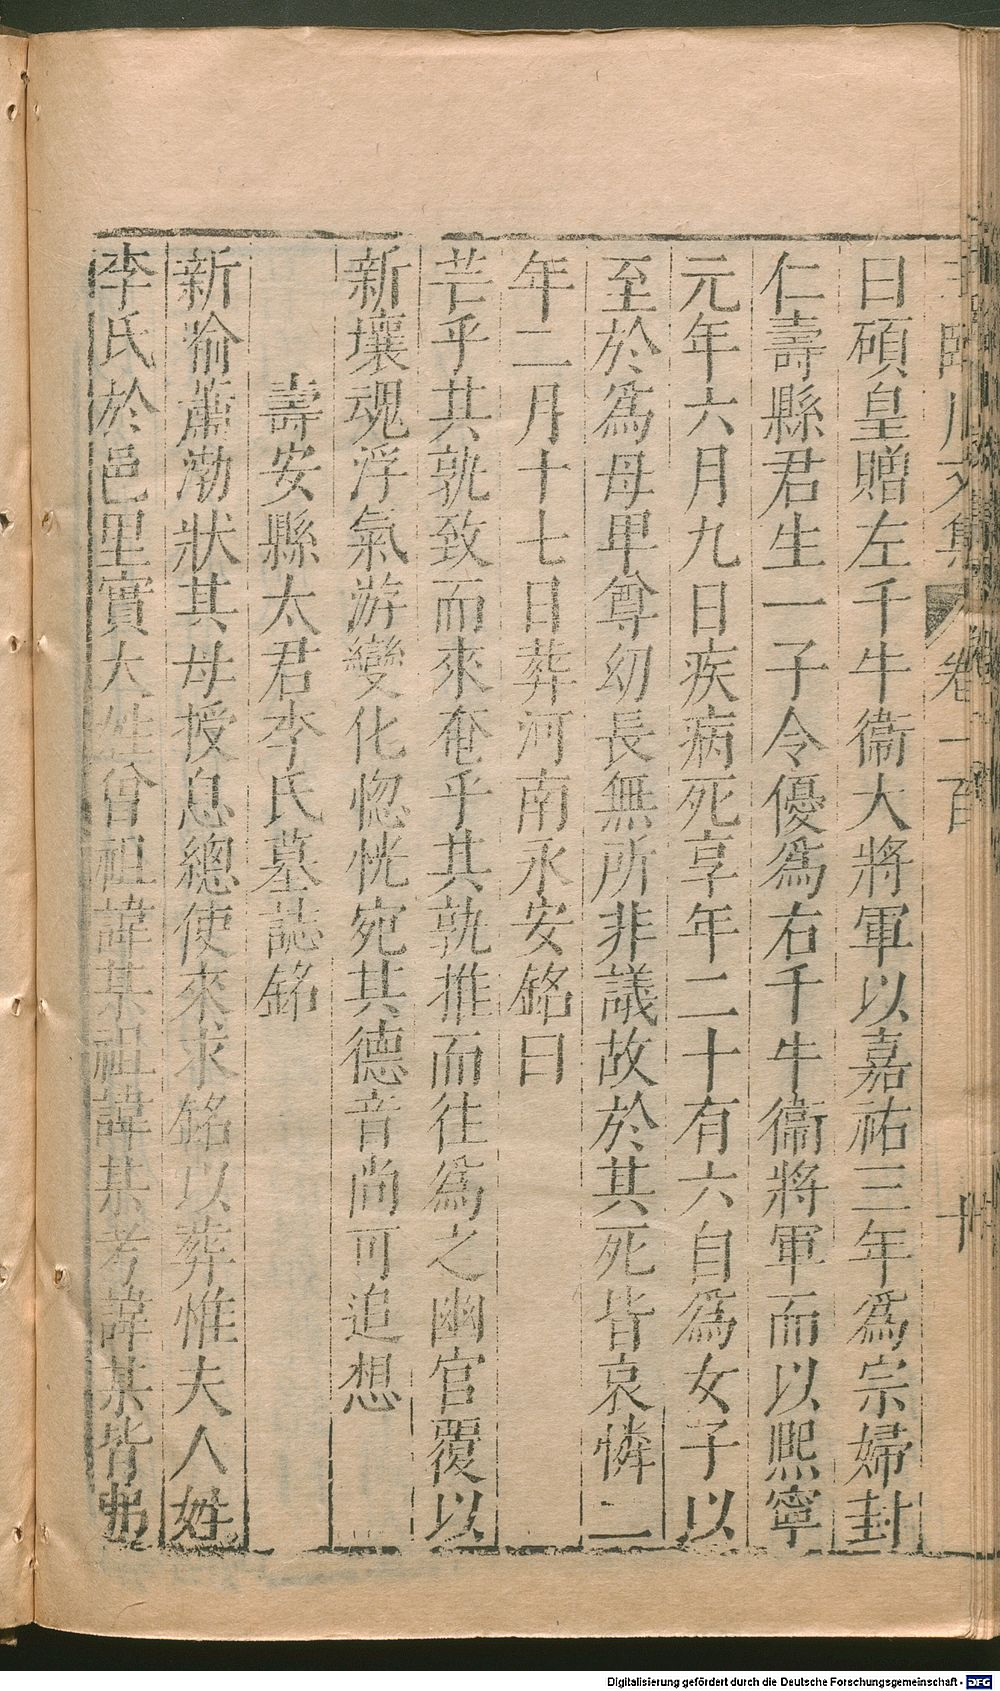 臨川文集 卷一百 十
曰碩皇贈左千牛衞大將軍以嘉祐三年爲宗婦封
仁壽縣君生一子令優爲右千牛衞將軍而以熙寧
元年六月九日疾病死享年二十有六自爲女子以
至於爲母卑尊幼長無所非議故於其死皆哀憐二
年二月十七日葬河南永安銘曰
芒乎其孰致而來奄乎其孰推而往爲之幽官覆以
新壤魂浮氣游變化惚恍宛其德音尚可追想
壽安縣太君李氏墓誌銘
新喻蕭渤狀其母授息總使來求銘以葬惟夫人姓
李氏於邑里實大姓曾祖諱某祖諱某考諱某皆弗
Digitalisierung gefördert durch die Deutsche Forschungsgemeinschaft - DFG